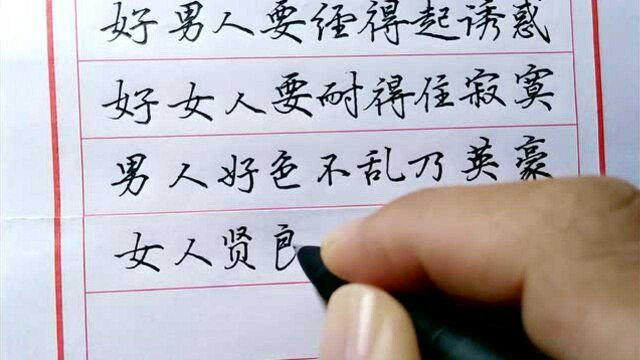 好男人要经得起诱惑
好女人要耐得住寂寞
男人好色不乱乃英豪
女人贤良